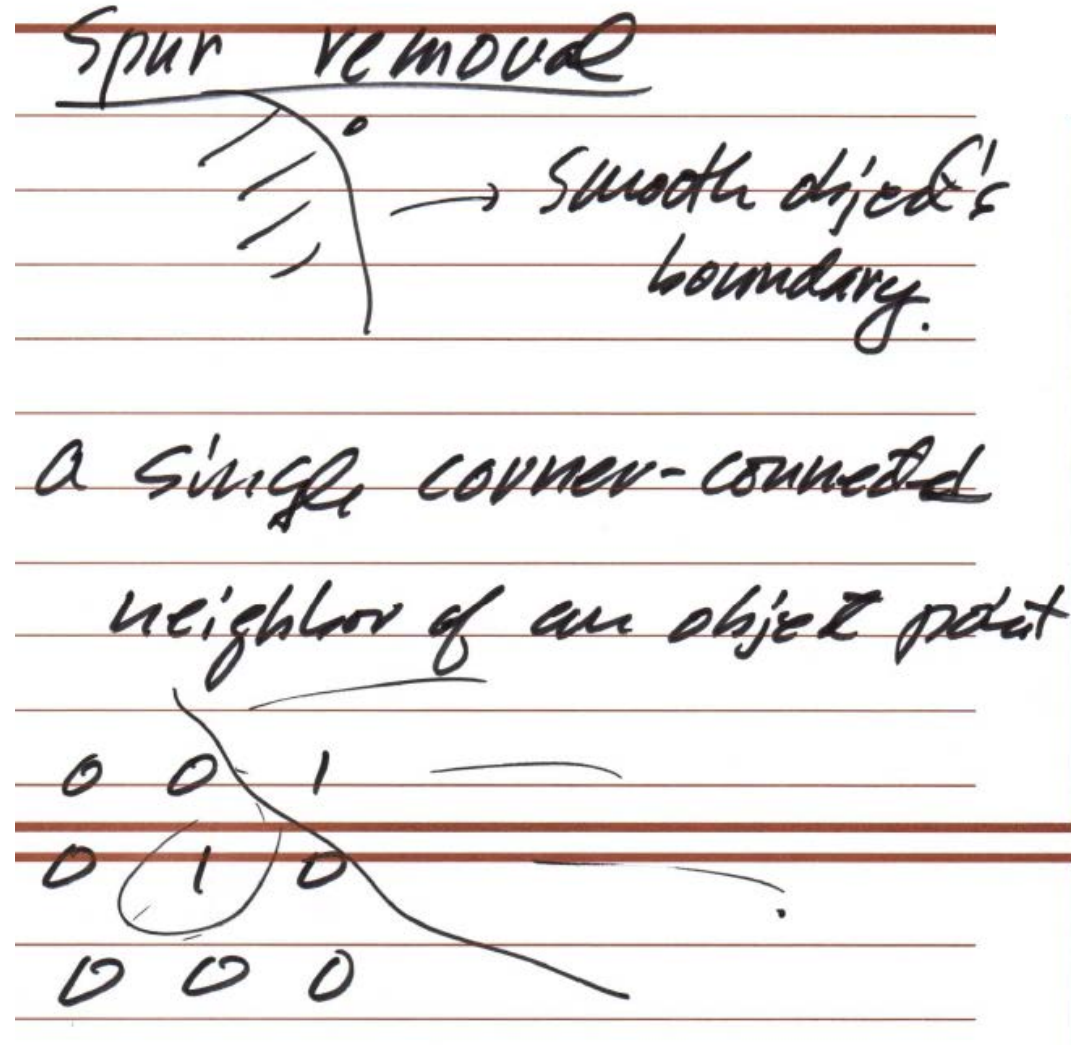 Spur removal
→ smooth object's
boundary.
a single corner-connected
neighbor of an object point
0 0 1
0 1 0
0 0 0